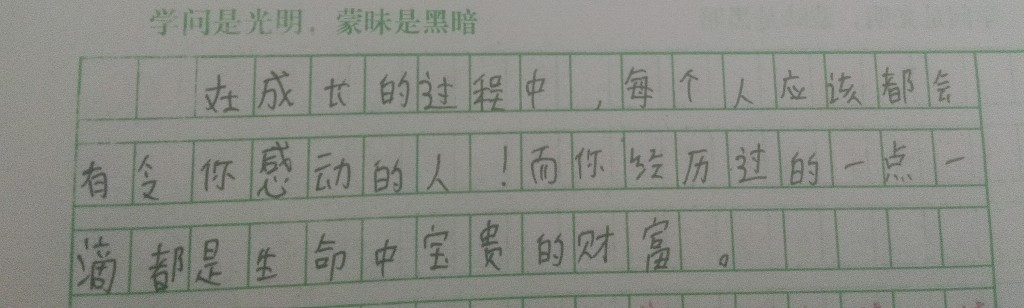 学问是光明，蒙昧是黑暗
在成长的过程中，每个人应该都会
有令你感动的人！而你经历过的一点一
滴都是生命中宝贵的财富。